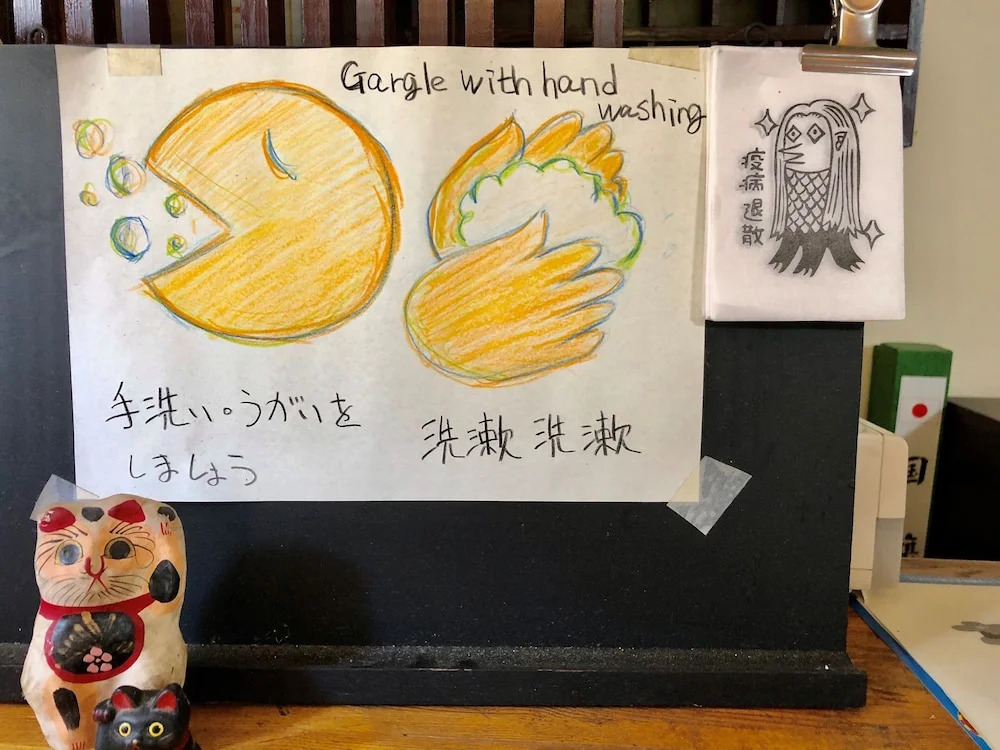 Gargle with hand
washing
手洗い。うがいを
しましょう
洗漱 洗漱
疫病退散
国
旗